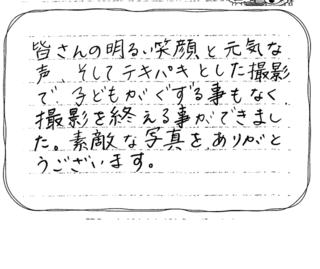 皆さんの明るい笑顔と元気な
声、そしてテキパキとした撮影
で、子どもがぐずる事もなく、
撮影を終える事ができまし
た。素敵な写真を、ありがと
うございます。